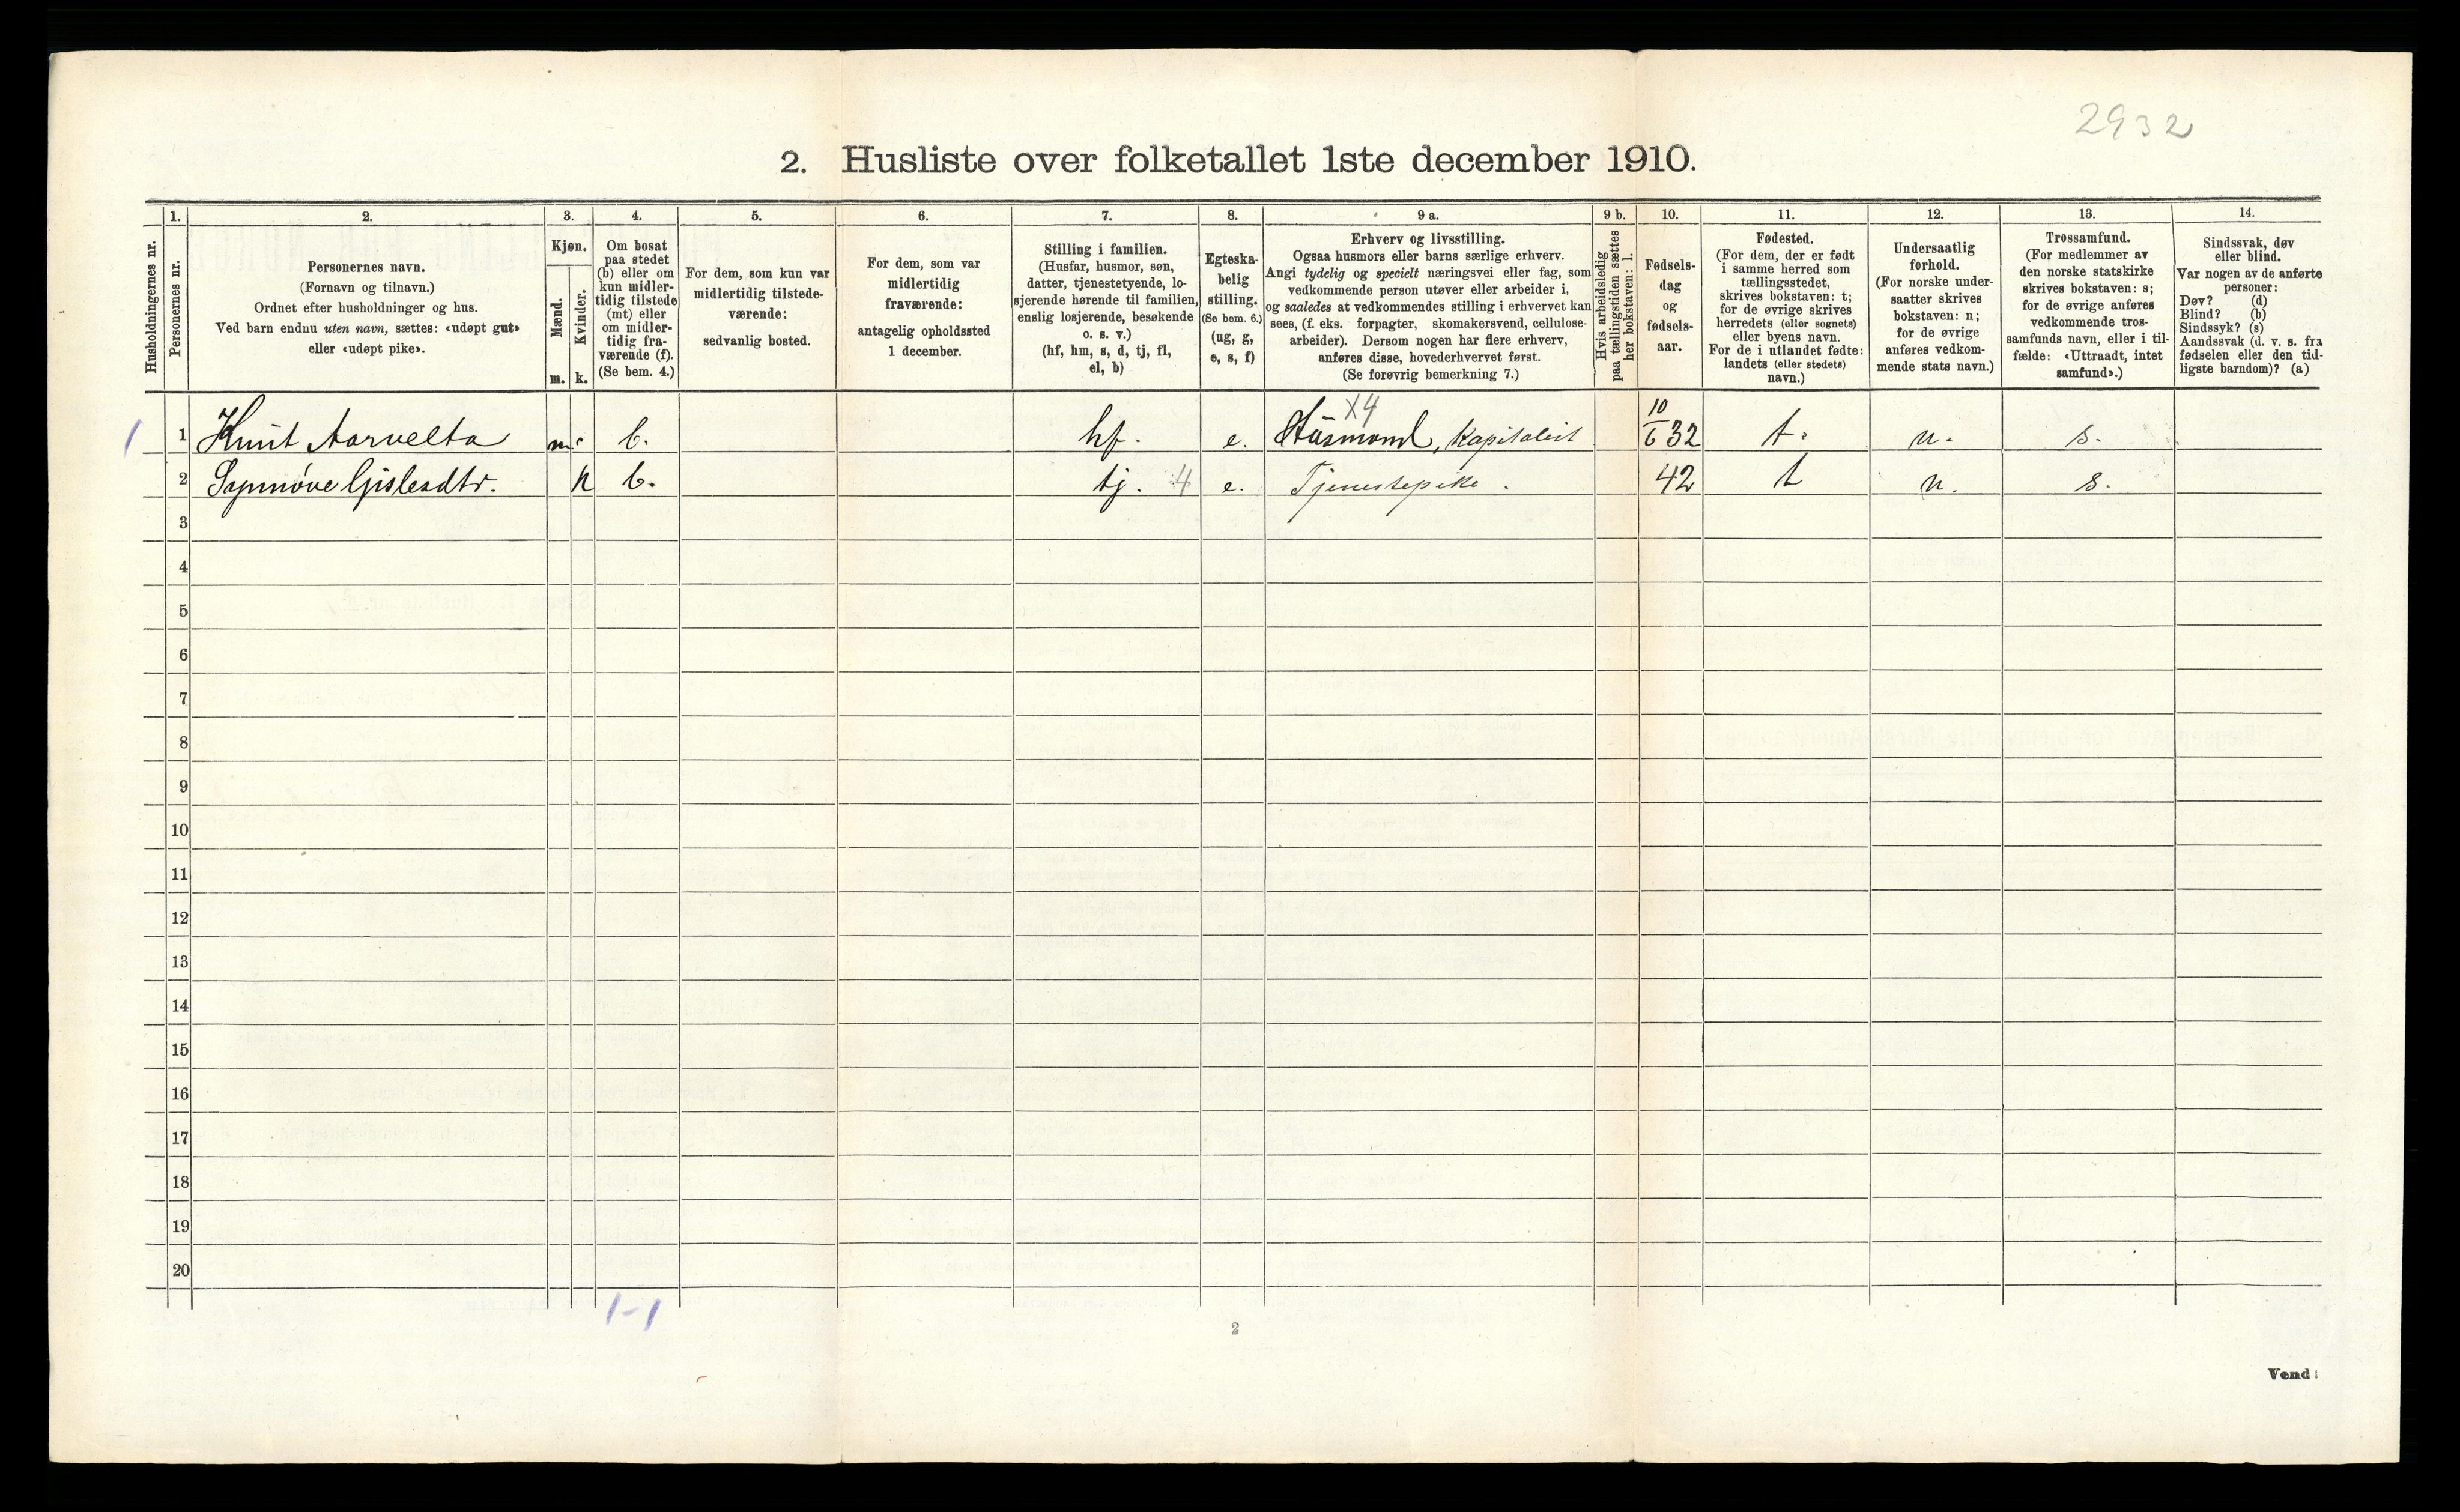 2932
2. Husliste over folketallet 1ste december 1910.
Husholdningernes nr.
1.
Personernes nr.
2.
Personernes navn.
(Fornavn og tilnavn.)
Ordnet efter husholdninger og hus.
Ved barn endnu uten navn, sættes: «udøpt gut»
eller «udøpt pike».
3.
Kjøn.
Mænd.
Kvinder.
m. k.
4.
Om bosat
paa stedet
(b) eller om
kun midler-
tidig tilstede
(mt) eller
om midler-
tidig fra-
værende (f).
(Se bem. 4.)
5.
For dem, som kun var
midlertidig tilstede-
værende:
sedvanlig bosted.
6.
For dem, som var
midlertidig
fraværende:
antagelig opholdssted
1 december.
7.
Stilling i familien.
(Husfar, husmor, søn,
datter, tjenestetyende, lo-
sjerende hørende til familien,
enslig losjerende, besøkende
o. s. v.)
(hf, hm, s, d, tj, fl,
el, b)
8.
Egteska-
belig
stilling.
(Se bem. 6.)
(ug, g,
e, s, f)
9 a.
Erhverv og livsstilling.
Ogsaa husmors eller barns særlige erhverv.
Angi tydelig og specielt næringsvei eller fag, som
vedkommende person utøver eller arbeider i,
og saaledes at vedkommendes stilling i erhvervet kan
sees, (f. eks. forpagter, skomakersvend, cellulose-
arbeider). Dersom nogen har flere erhverv,
anføres disse, hovederhvervet først.
(Se forøvrig bemerkning 7.)
9 b.
Hvis arbeidsledig
paa tællingstiden sættes
her bokstaven: l.
10.
Fødsels-
dag
og
fødsels-
aar.
11.
Fødested.
(For dem, der er født
i samme herred som
tællingsstedet,
skrives bokstaven: t;
for de øvrige skrives
herredets (eller sognets)
eller byens navn.
For de i utlandet fødte:
landets (eller stedets)
navn.)
12.
Undersaatlig
forhold.
(For norske under-
saatter skrives
bokstaven: n;
for de øvrige
anføres vedkom-
mende stats navn.)
13.
Trossamfund.
(For medlemmer av
den norske statskirke
skrives bokstaven: s;
for de øvrige anføres
vedkommende tros-
samfunds navn, eller i til-
fælde: «Uttraadt, intet
samfund».)
14.
Sindssvak, døv
eller blind.
Var nogen av de anførte
personer:
Døv? (d)
Blind? (b)
Sindssyk? (s)
Aandssvak (d. v. s. fra
fødselen eller den tid-
ligste barndom)? (a)
X4
1 1 Knut Aarvelta m. b. hf. e. Husmand, Kapitalist 10/6 32 t. n. s.
2 Synnøve Gislesdtr. k b. tj. 4 e. Tjenestepike. 42 t n. s.
3
4
5
6
7
8
9
10
11
12
13
14
15
16
17
18
19
20
1-1
2
Vend!